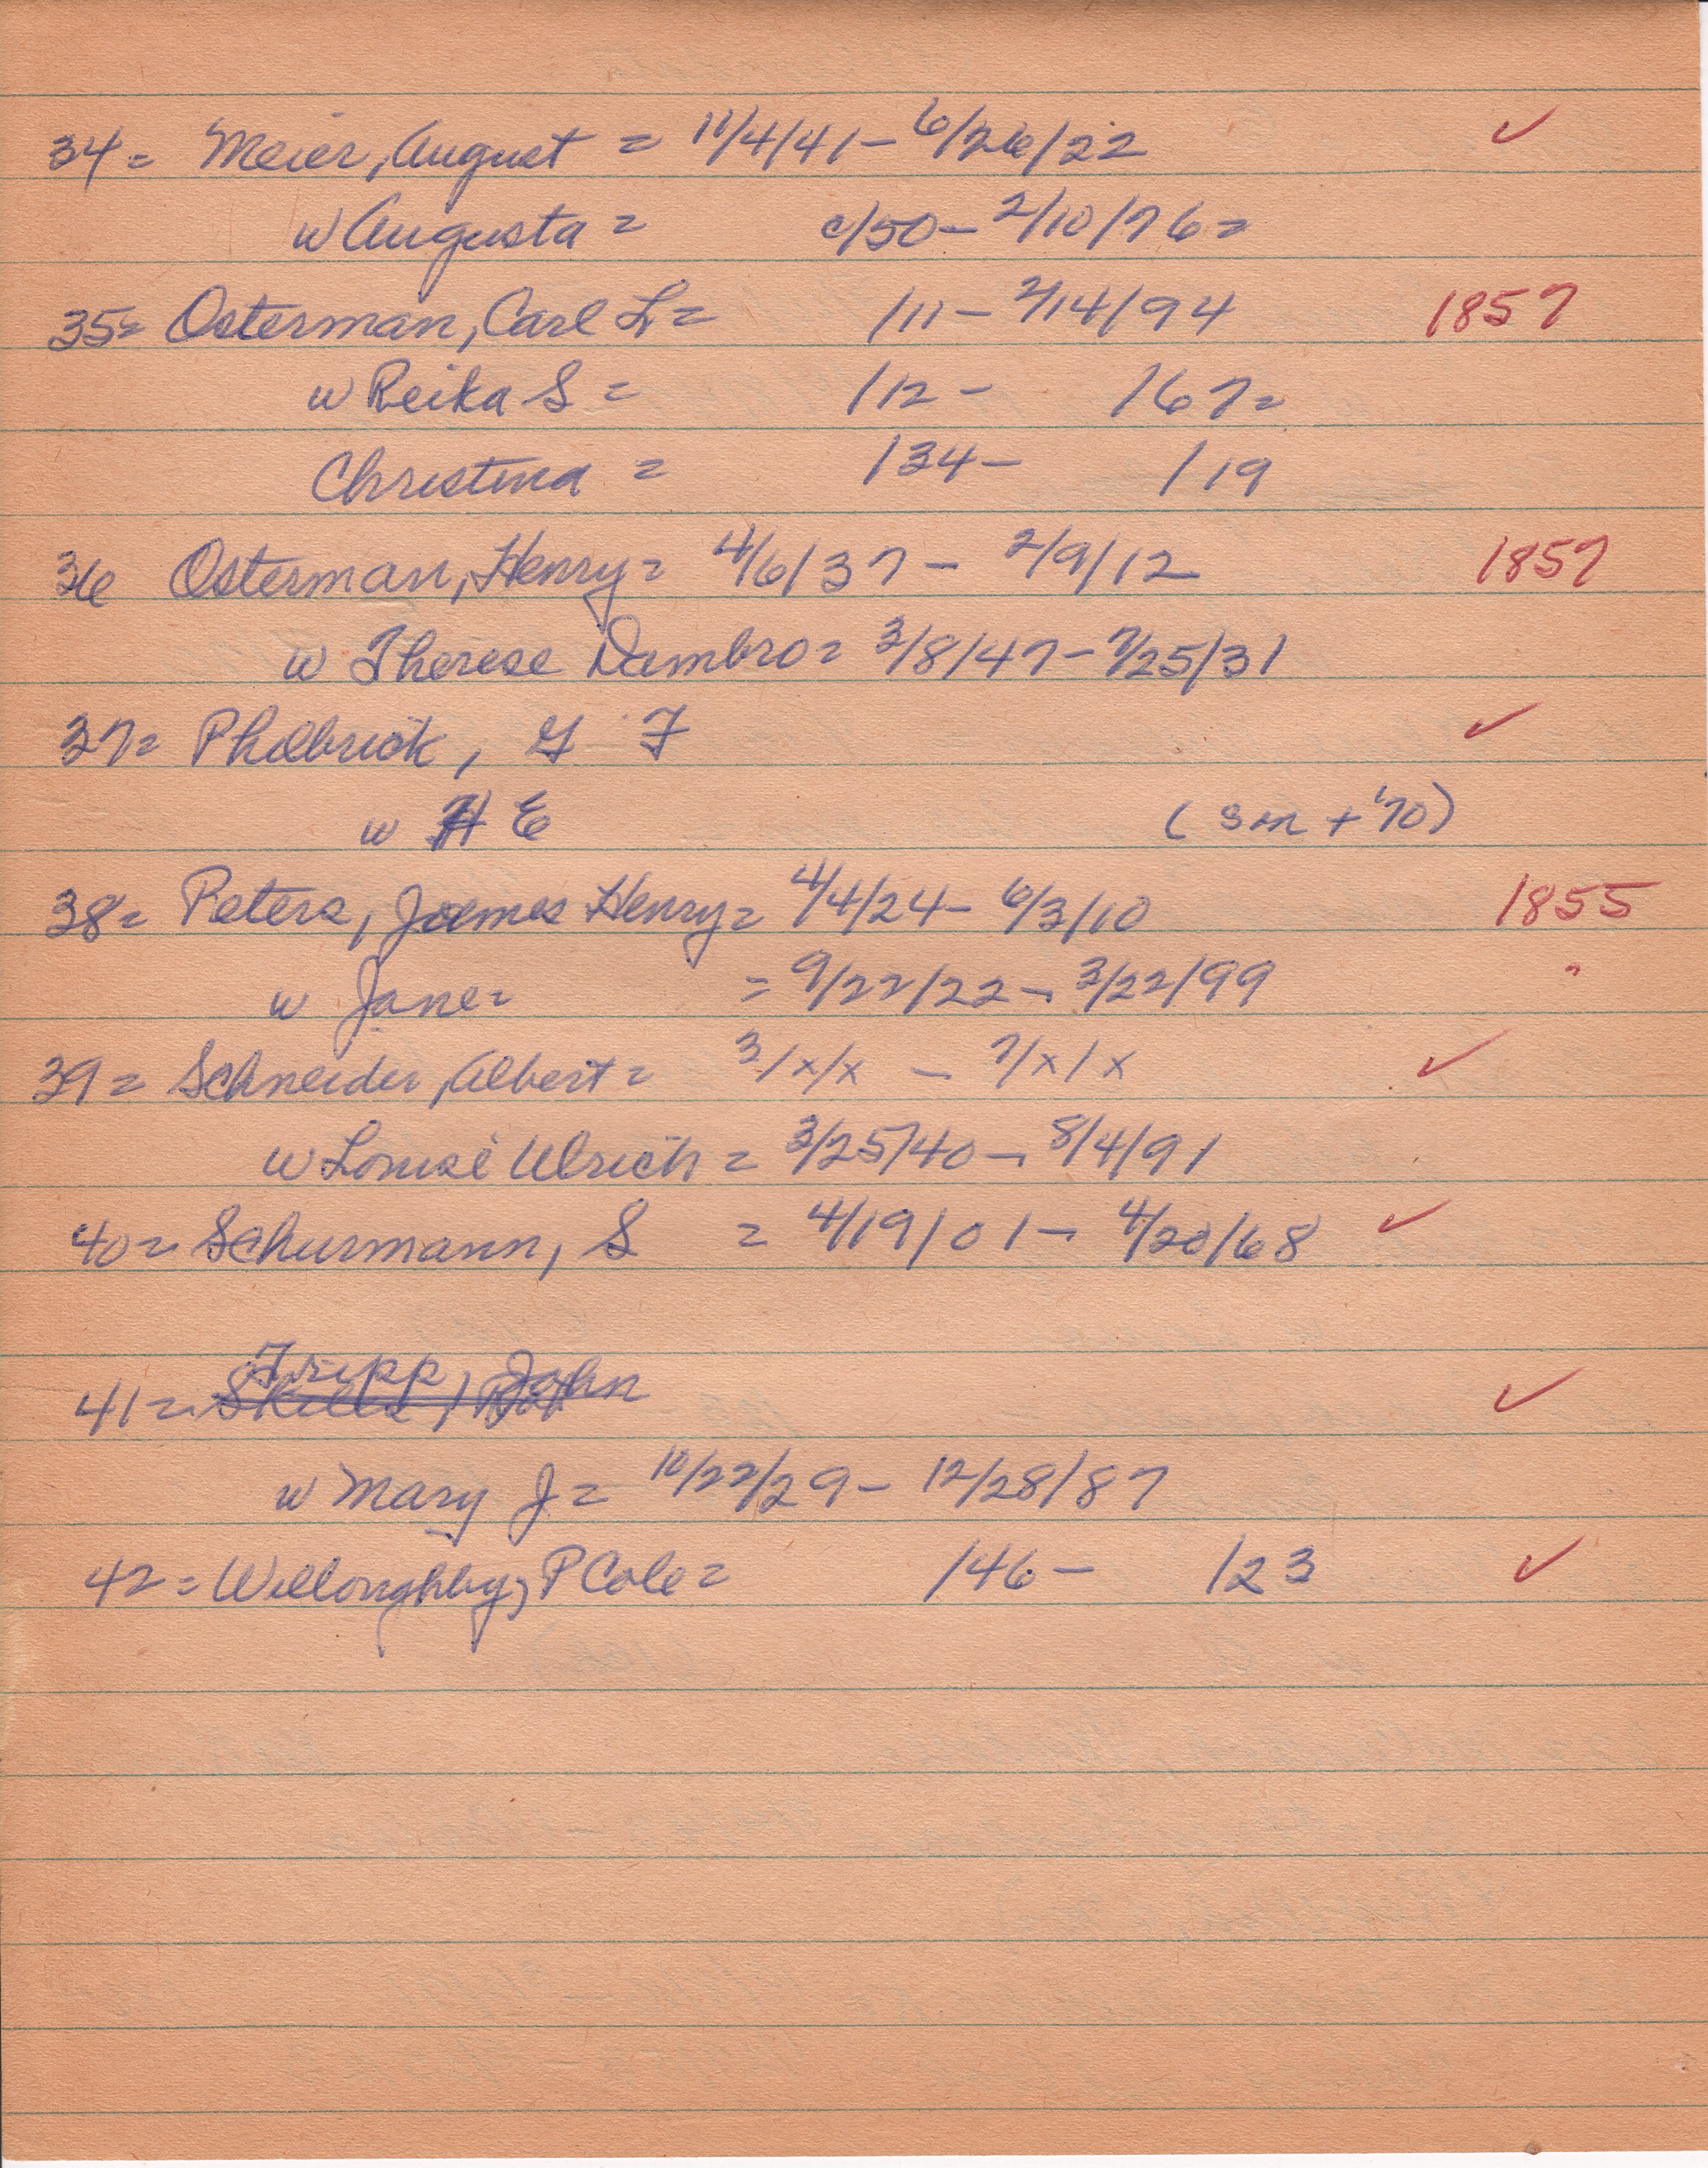 34 = Meier, August = 11/4/41 - 6/26/22 ✓
w Augusta = c/50 - 2/10/76 =
35 = Osterman, Carl L = /11 - 2/14/94 1857
w Reika S = /12 - /67 =
Christina = /34 - /19
36 Osterman, Henry = 4/6/37 - 2/9/12 1857
w Therese Dambro = 3/8/47 - 7/25/31
37 = Philbrick, G F ✓
w H E (3m + '70)
38 = Peters, James Henry = 4/4/24 - 6/3/10 1855
w Jane = = 9/22/22 - 3/22/99 ?
39 = Schneider, Albert = 3/x/x - 7/x/x ✓
w Louise Ulrich = 3/25/40 - 8/4/91
40 = Schurmann, S = 4/19/01 - 4/20/68 ✓
Tripp, John
41 = ✓
w Mary J = 10/22/29 - 12/28/87
42 = Willoughby, P Cole = /46 - /23 ✓